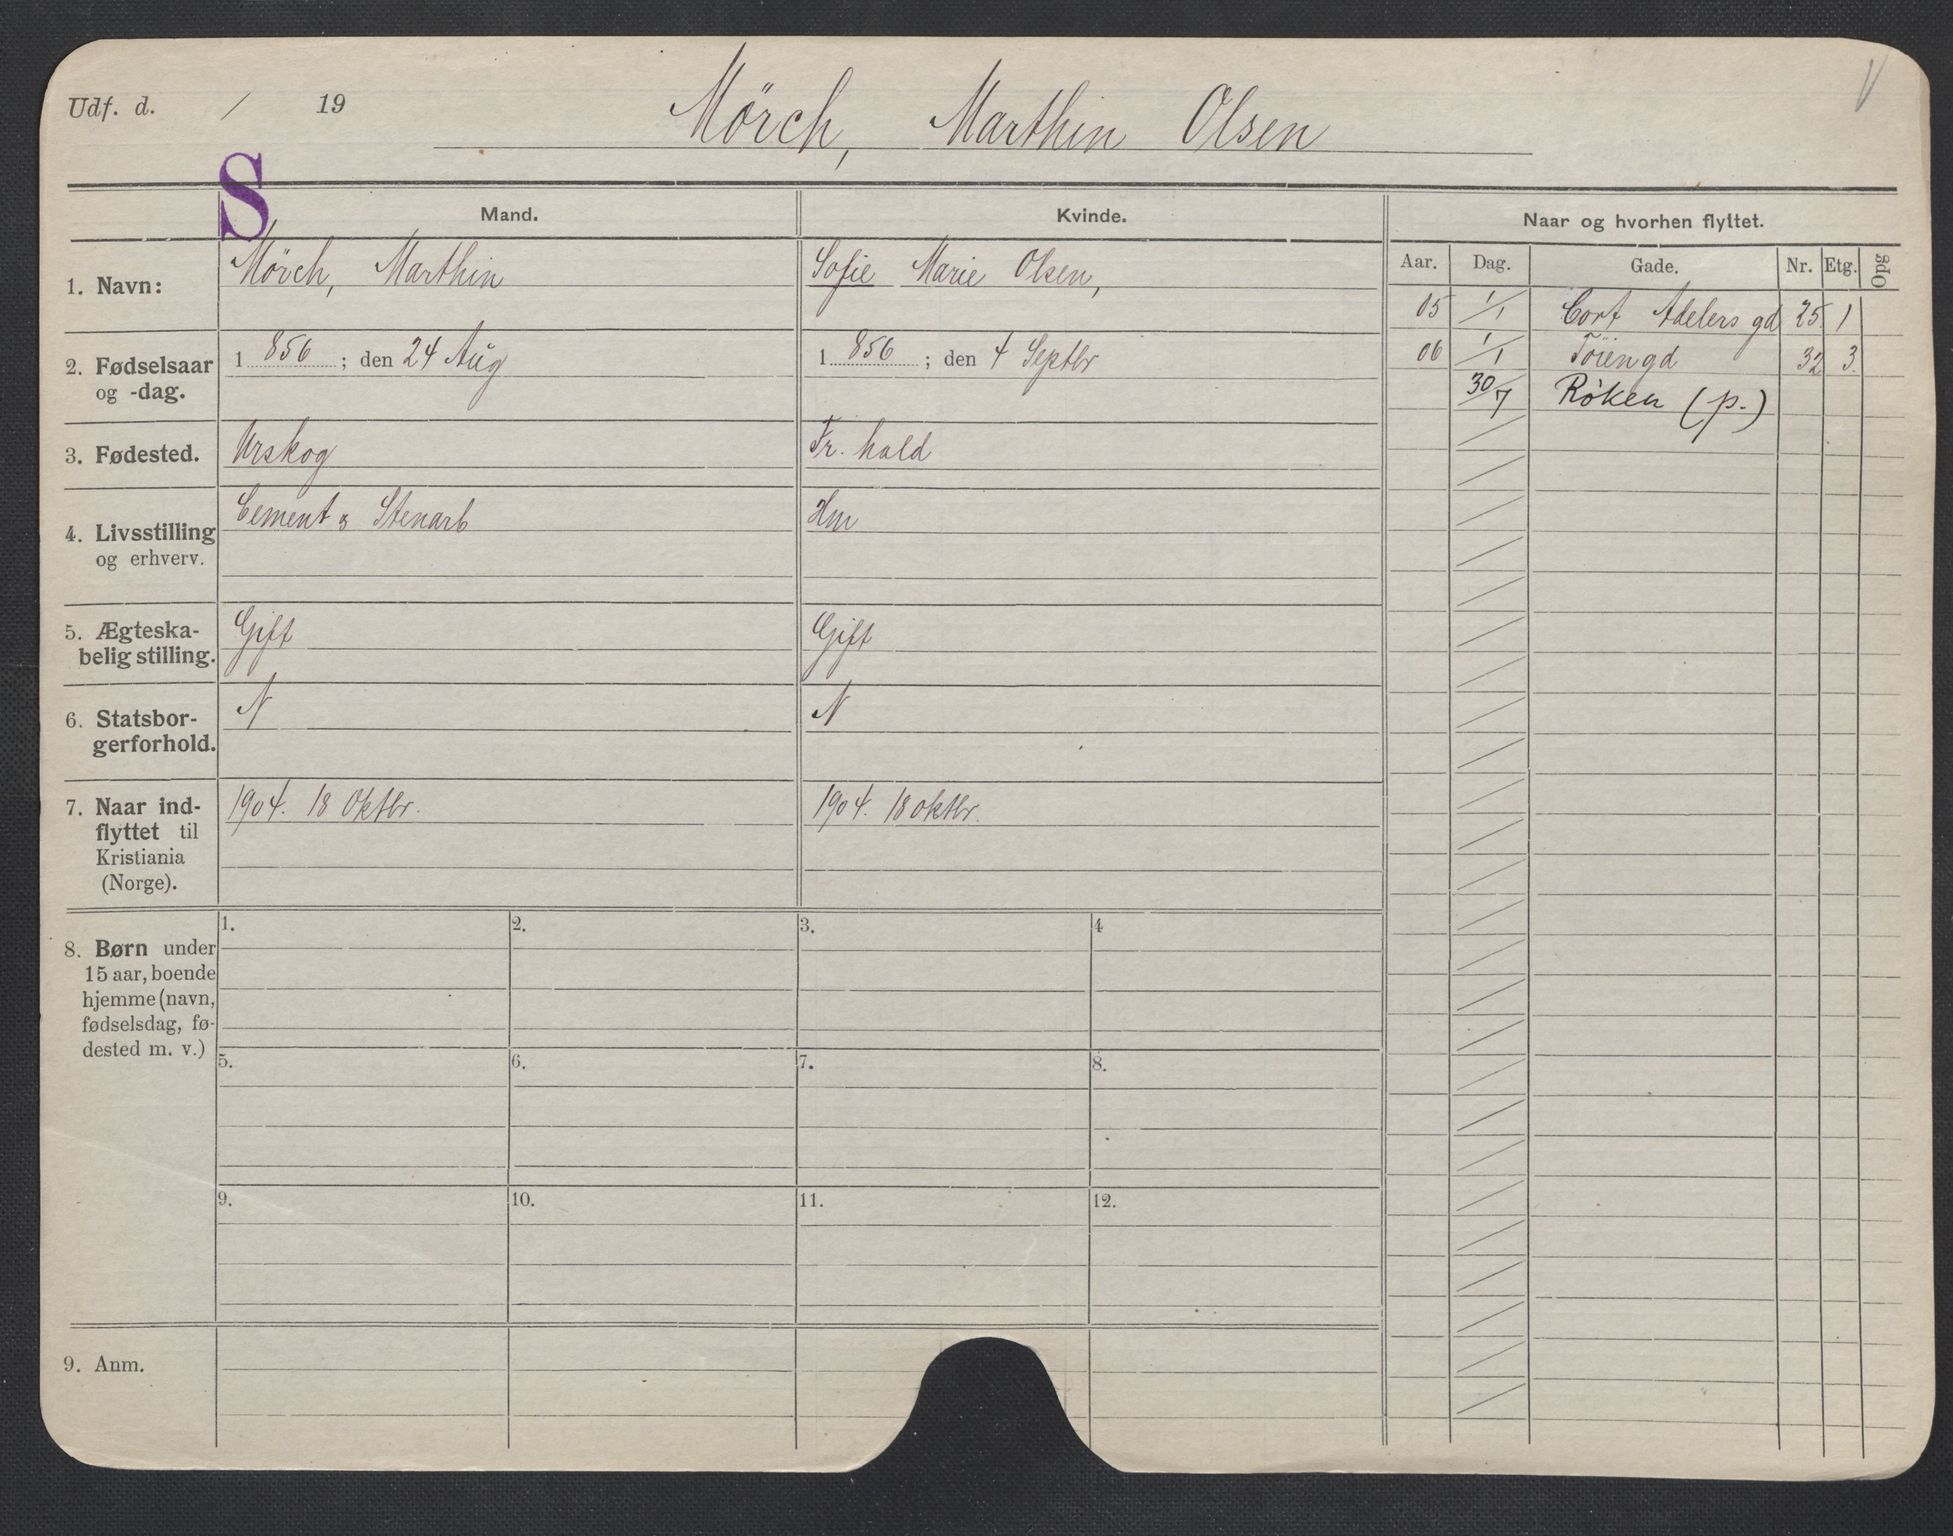 Udf. d. / 19
Mörch, Marthin Olsen
V
S
Mand.
Kvinde.
Naar og hvorhen flyttet.
Aar. Dag. Gade. Nr. Etg. Opg
1. Navn:
Mörch, Marthin
Sofie Marie Olsen,
05 1/1 Cort Adelers gd 25 1
06 1/1 Töiengd 32 3.
30/7 Röken (p.)
2. Fødselsaar
og -dag.
1 856 ; den 24 Aug
1 856 ; den 4 Septbr
3. Fødested.
Urskog
Fr. hald
4. Livsstilling
og erhverv.
Cement & Stenarb
Hm
5. Ægteska-
belig stilling.
Gift
Gift
6. Statsbor-
gerforhold.
N
N
7. Naar ind-
flyttet til
Kristiania
(Norge).
1904. 18 Oktbr.
1904. 18 oktbr.
8. Børn under
15 aar, boende
hjemme (navn,
fødselsdag, fø-
dested m. v.)
1. 2. 3. 4
5. 6. 7. 8.
9. 10. 11. 12.
9. Anm.